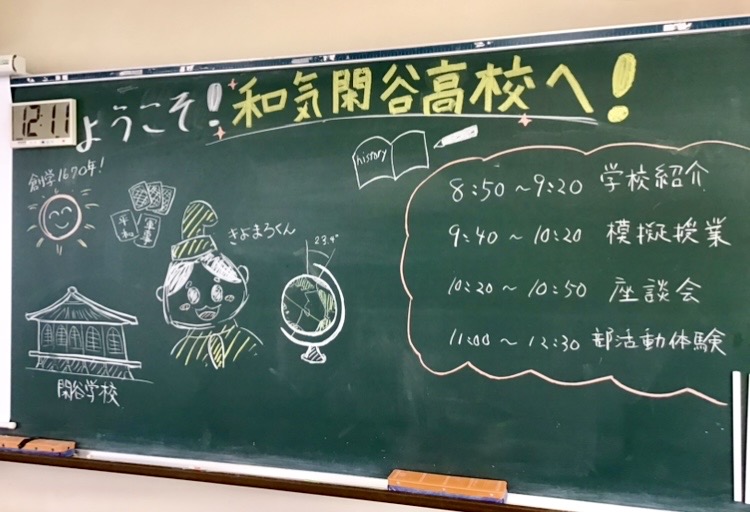 ようこそ!和気閑谷高校へ!
12:11
history
創学1670年!
平和
軍事
きよまろくん
23.4°
閑谷学校
8:50〜9:20 学校紹介
9:40〜10:20 模擬授業
10:20〜10:50 座談会
11:00〜12:30 部活動体験